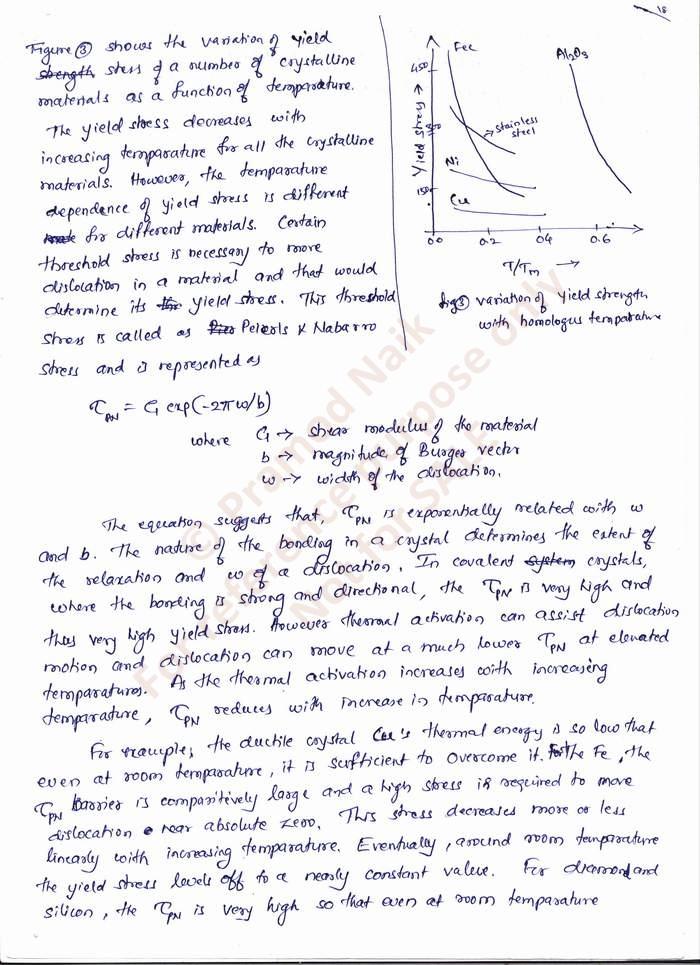 18
Figure ③ shows the variation of yield
strength stess of a number of crystalline
materials as a function of temparature.
The yield stress decreases with
increasing temparature for all the crystalline
materials. However, the temparature
dependence of yield stress is different
for different materials. Certain
threshold stress is necessary to move
dislocation in a material and that would
determine its yield stress. This threshold
stress is called as Peierls & Nabarro
stress and is represented as
Yield stress →
450
300
150
Fcc
Al₂O₃
stainless
steel
Ni
Cu
0.0 0.2 0.4 0.6
T/Tm →
fig③ variation of yield strength
with homologus temparature
τPN = G exp(-2πw/b)
where G → shear modulus of the material
b → magnitude of Burger vector
w → width of the dislocation.
The equation suggests that, τPN is exponentially related with w
and b. The nature of the bonding in a crystal determines the extent of
the relaxation and w of a dislocation. In covalent system crystals,
where the bonding is strong and directional, the τPN is very high and
thus very high yield stress. However thermal activation can assist dislocation
motion and dislocation can move at a much lower τPN at elevated
temparatures. As the thermal activation increases with increasing
temparature, τPN reduces with increase in temparature.
For example; the ductile crystal Cu's thermal energy is so low that
even at room temparature, it is sufficient to overcome it. For the Fe, the
τPN Barrier is comparitively large and a high stress is required to move
dislocation near absolute zero. This stress decreases more or less
linearly with increasing temparature. Eventually, around room temparature
the yield stress levels off to a nearly constant value. For diamond and
silicon, the τPN is very high so that even at room temparature
© Pramod Naik
For reference purpose only
Not for SALE